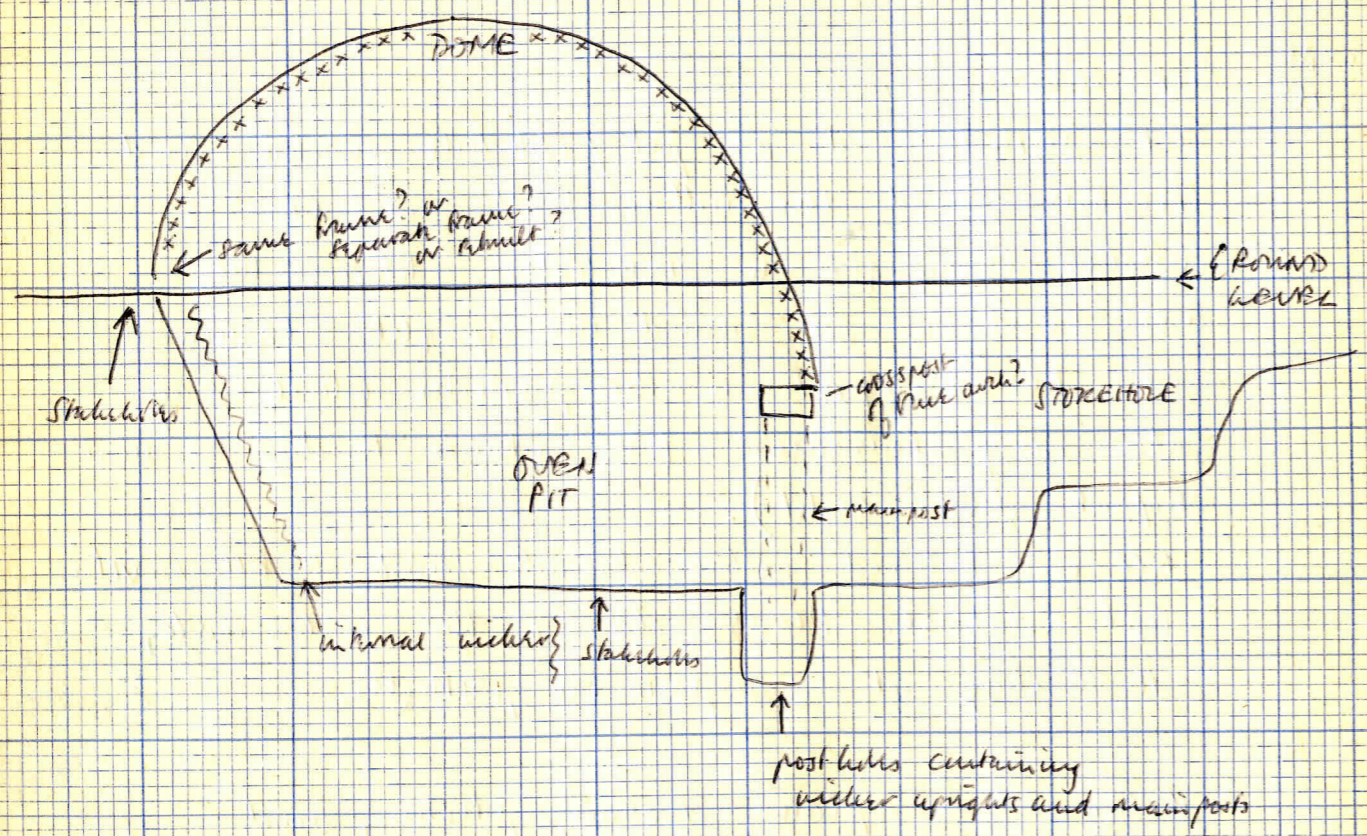 DOME
same frame? or
separate frame?
or rebuilt?
GROUND
LEVEL
Stakeholes
crosspost
of flue arch?
STOKEHOLE
OVEN
PIT
main post
internal wicker} stakeholes
post holes containing
wicker uprights and main posts